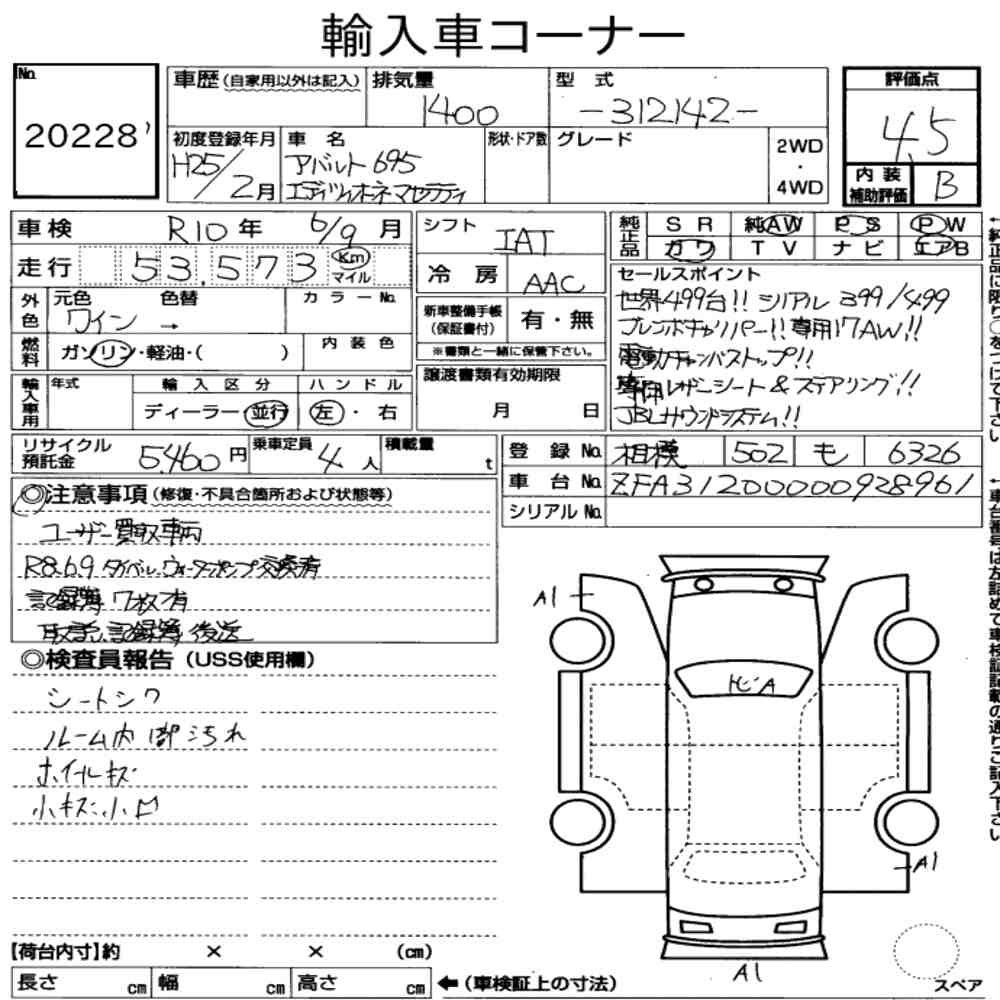 輸入車コーナー
No.
20228
車歴(自家用以外は記入)
排気量
1400
型式
-312142-
評価点
4.5
初度登録年月
H25/2月
車名
アバルト695
エディツィオーネ マセラティ
形状・ドア数
グレード
2WD
・
4WD
内装
補助評価
B
車検
R10年 6/9月
シフト
IAT
純正品
SR 純AW PS PW
カワ TV ナビ エアB
走行
53,573
Km
マイル
冷房
AAC
セールスポイント
世界499台!! シリアル 399/499
ブレンボキャリパー!! 専用17AW!!
電動キャンバストップ!!
専用レザーシート&ステアリング!!
JBLサウンドシステム!!
外色
元色
色替
カラーNo.
ワイン →
新車整備手帳
(保証書付)
有・無
※書類と一緒に保管下さい。
燃料
ガソリン・軽油・( )
内装色
輸入車用
年式
輸入区分
ディーラー・並行
ハンドル
左・右
譲渡書類有効期限
月 日
リサイクル
預託金
5,460円
乗車定員
4人
積載量
t
登録No.
相模 502 も 6326
車台No.
ZFA31200000928961
シリアルNo.
◎注意事項(修復・不具合箇所および状態等)
ユーザー買取車両
R8.6.9 タイベル、ウォーターポンプ交換済
記録簿7枚有
取説、記録簿 後送
◎検査員報告(USS使用欄)
シートシワ
ルーム内 汚れ
ホイールキズ
小キズ、小凹
A1
ヒA
A1
A1
スペア
【荷台内寸】約 × × (cm)
長さ cm 幅 cm 高さ cm
←(車検証上の寸法)
←純正品に限り○をつけて下さい
←車台番号は左詰めで車検証記載の通りご記入下さい